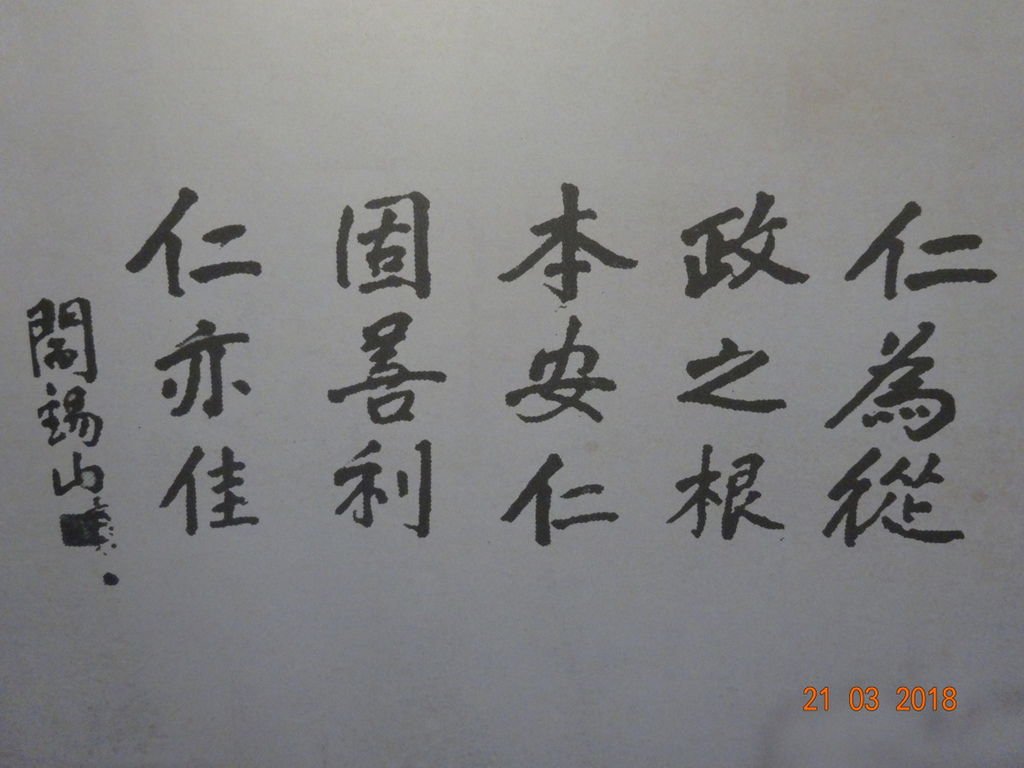 仁為從
政之根
本安仁
固善利
仁亦佳
閻錫山
21 03 2018